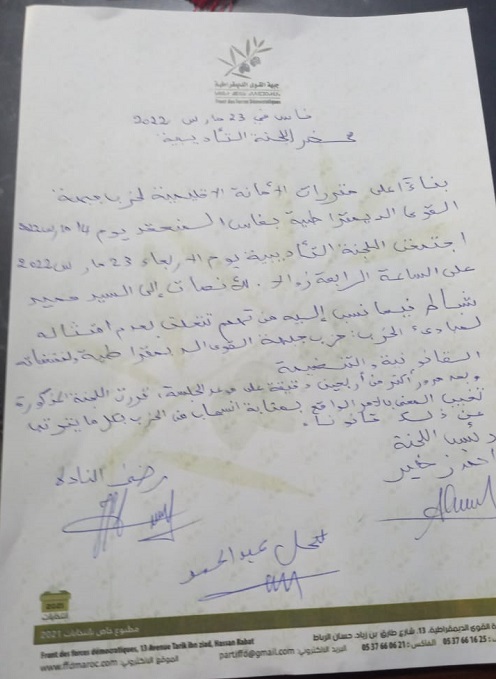 جبهة القوى الديمقراطية
Front des Forces Démocratiques
فاس في 23 مارس 2022
محضر اللجنة التأديبية
بناءً على مقررات الأمانة الإقليمية لحزب جبهة
القوى الديمقراطية بفاس المنعقد يوم 14 مارس 2022
اجتمعت اللجنة التأديبية يوم الاربعاء 23 مارس 2022
على الساعة الرابعة زوالا. للأنصات إلى السيد حميد
شباط فيما نسب إليه من تهم تتعلق بعدم امتثاله
لمبادئ الحزب: حزب جبهة القوى الديمقراطية ولمقتضياته
القانونية والتنظيمية
وبعد مرور أكثر من أربعين دقيقة على موعد الجلسة، قررت اللجنة المذكورة
تغييب المعني بالأمر الواقع بمثابة انسحاب من الحزب بكل ما يترتب
عن ذلك قانونا.
رئيس اللجنة
احمد زخير
رضى النادة
عبد الحميد
2021
انتخابات
مطبوع خاص بانتخابات 2021
Front des forces démocratiques, 13 Avenue Tarik ibn ziad, Hassan Rabat
القوى الديمقراطية، 13، شارع طارق بن زياد، حسان الرباط
www.ffdmaroc.com الموقع الإلكتروني: partiffd@gmail.com البريد الإلكتروني: 05 37 66 06 21 الفاكس: 05 37 66 16 25